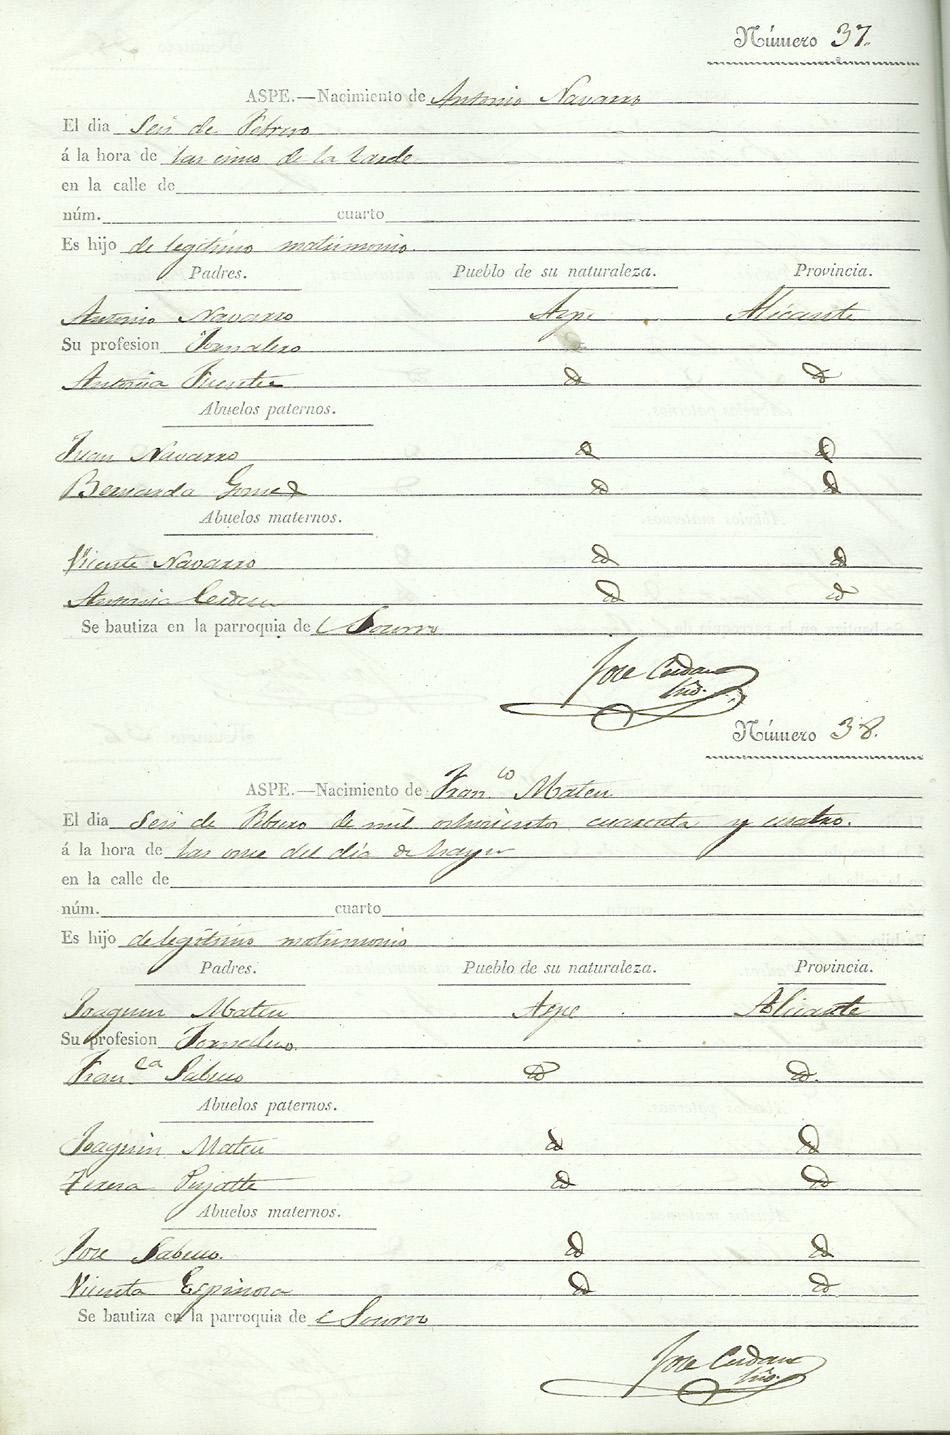 Número 37.
ASPE.—Nacimiento de Antonio Navarro
El dia Seis de Febrero
á la hora de las cinco de la tarde
en la calle de
núm. cuarto
Es hijo de legítimo matrimonio.
Padres. Pueblo de su naturaleza. Provincia.
Antonio Navarro Aspe Alicante
Su profesion Jornalero
Antonia Fuentes
Abuelos paternos.
Juan Navarro
Bernarda Gomez
Abuelos maternos.
Vicente Navarro
Antonia
Se bautiza en la parroquia de Socorro
Jose Cerdan
Srio.
Número 38.
ASPE.—Nacimiento de Fran.co Mateu
El dia Seis de Febrero de mil ochocientos cuarenta y cuatro.
á la hora de las once del dia de hayer
en la calle de
núm. cuarto
Es hijo de legítimo matrimonio
Padres. Pueblo de su naturaleza. Provincia.
Joaquin Mateu Aspe Alicante
Su profesion Jornalero.
Fran.ca Sabuco
Abuelos paternos.
Joaquin Mateu
Teresa Pujalte
Abuelos maternos.
Jose Sabuco.
Vicenta Espinosa
Se bautiza en la parroquia de Socorro
Jose Cerdan
Srio.